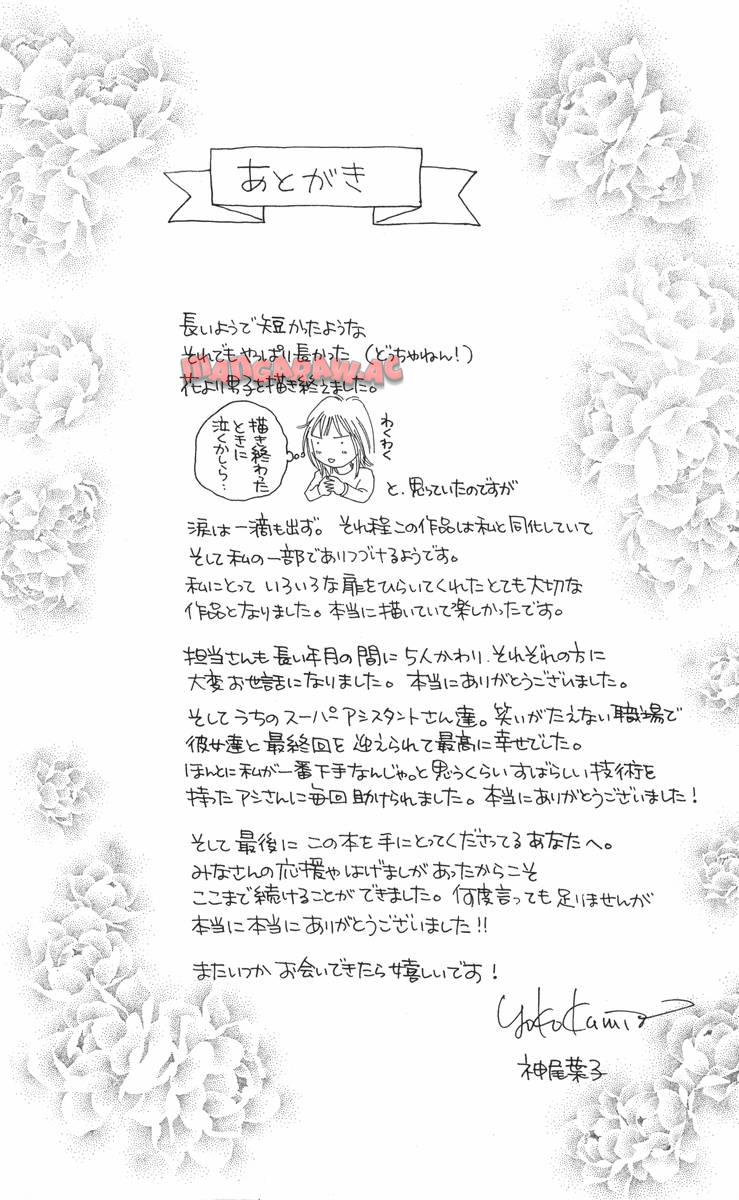 あとがき
長いようで短かったような
それでもやっぱり長かった (どっちゃねん!)
MANGARAW.AC
花より男子を描き終えました。
描き終わった
ときに
泣くかしら…
わくわく
と、思っていたのですが
涙は一滴も出ず。それ程この作品は私と同化していて
そして私の一部でありつづけるようです。
私にとって いろいろな扉をひらいてくれたとても大切な
作品となりました。本当に描いていて楽しかったです。
担当さんも長い年月の間に5人かわり、それぞれの方に
大変お世話になりました。本当にありがとうございました。
そしてうちのスーパーアシスタントさん達。笑いがたえない職場で
彼女達と最終回を迎えられて最高に幸せでした。
ほんとに私が一番下手なんじゃっと思うくらいすばらしい技術を
持ったアシさんに毎回助けられました。本当にありがとうございました!
そして最後に この本を手にとってくださってるあなたへ。
みなさんの応援やはげましがあったからこそ
ここまで続けることができました。何度言っても足りませんが
本当に本当にありがとうございました!!
またいつか お会いできたら嬉しいです!
Yoko Kamio
神尾葉子